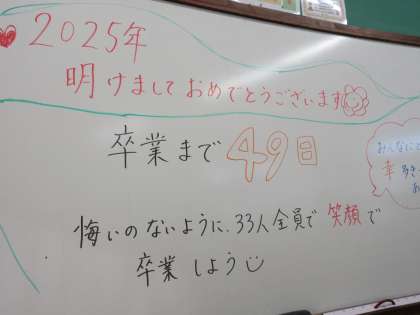 2025年
明けましておめでとうございます
卒業まで49日
みんなにと
幸多き
あ
悔いのないように、33人全員で笑顔で
卒業しよう